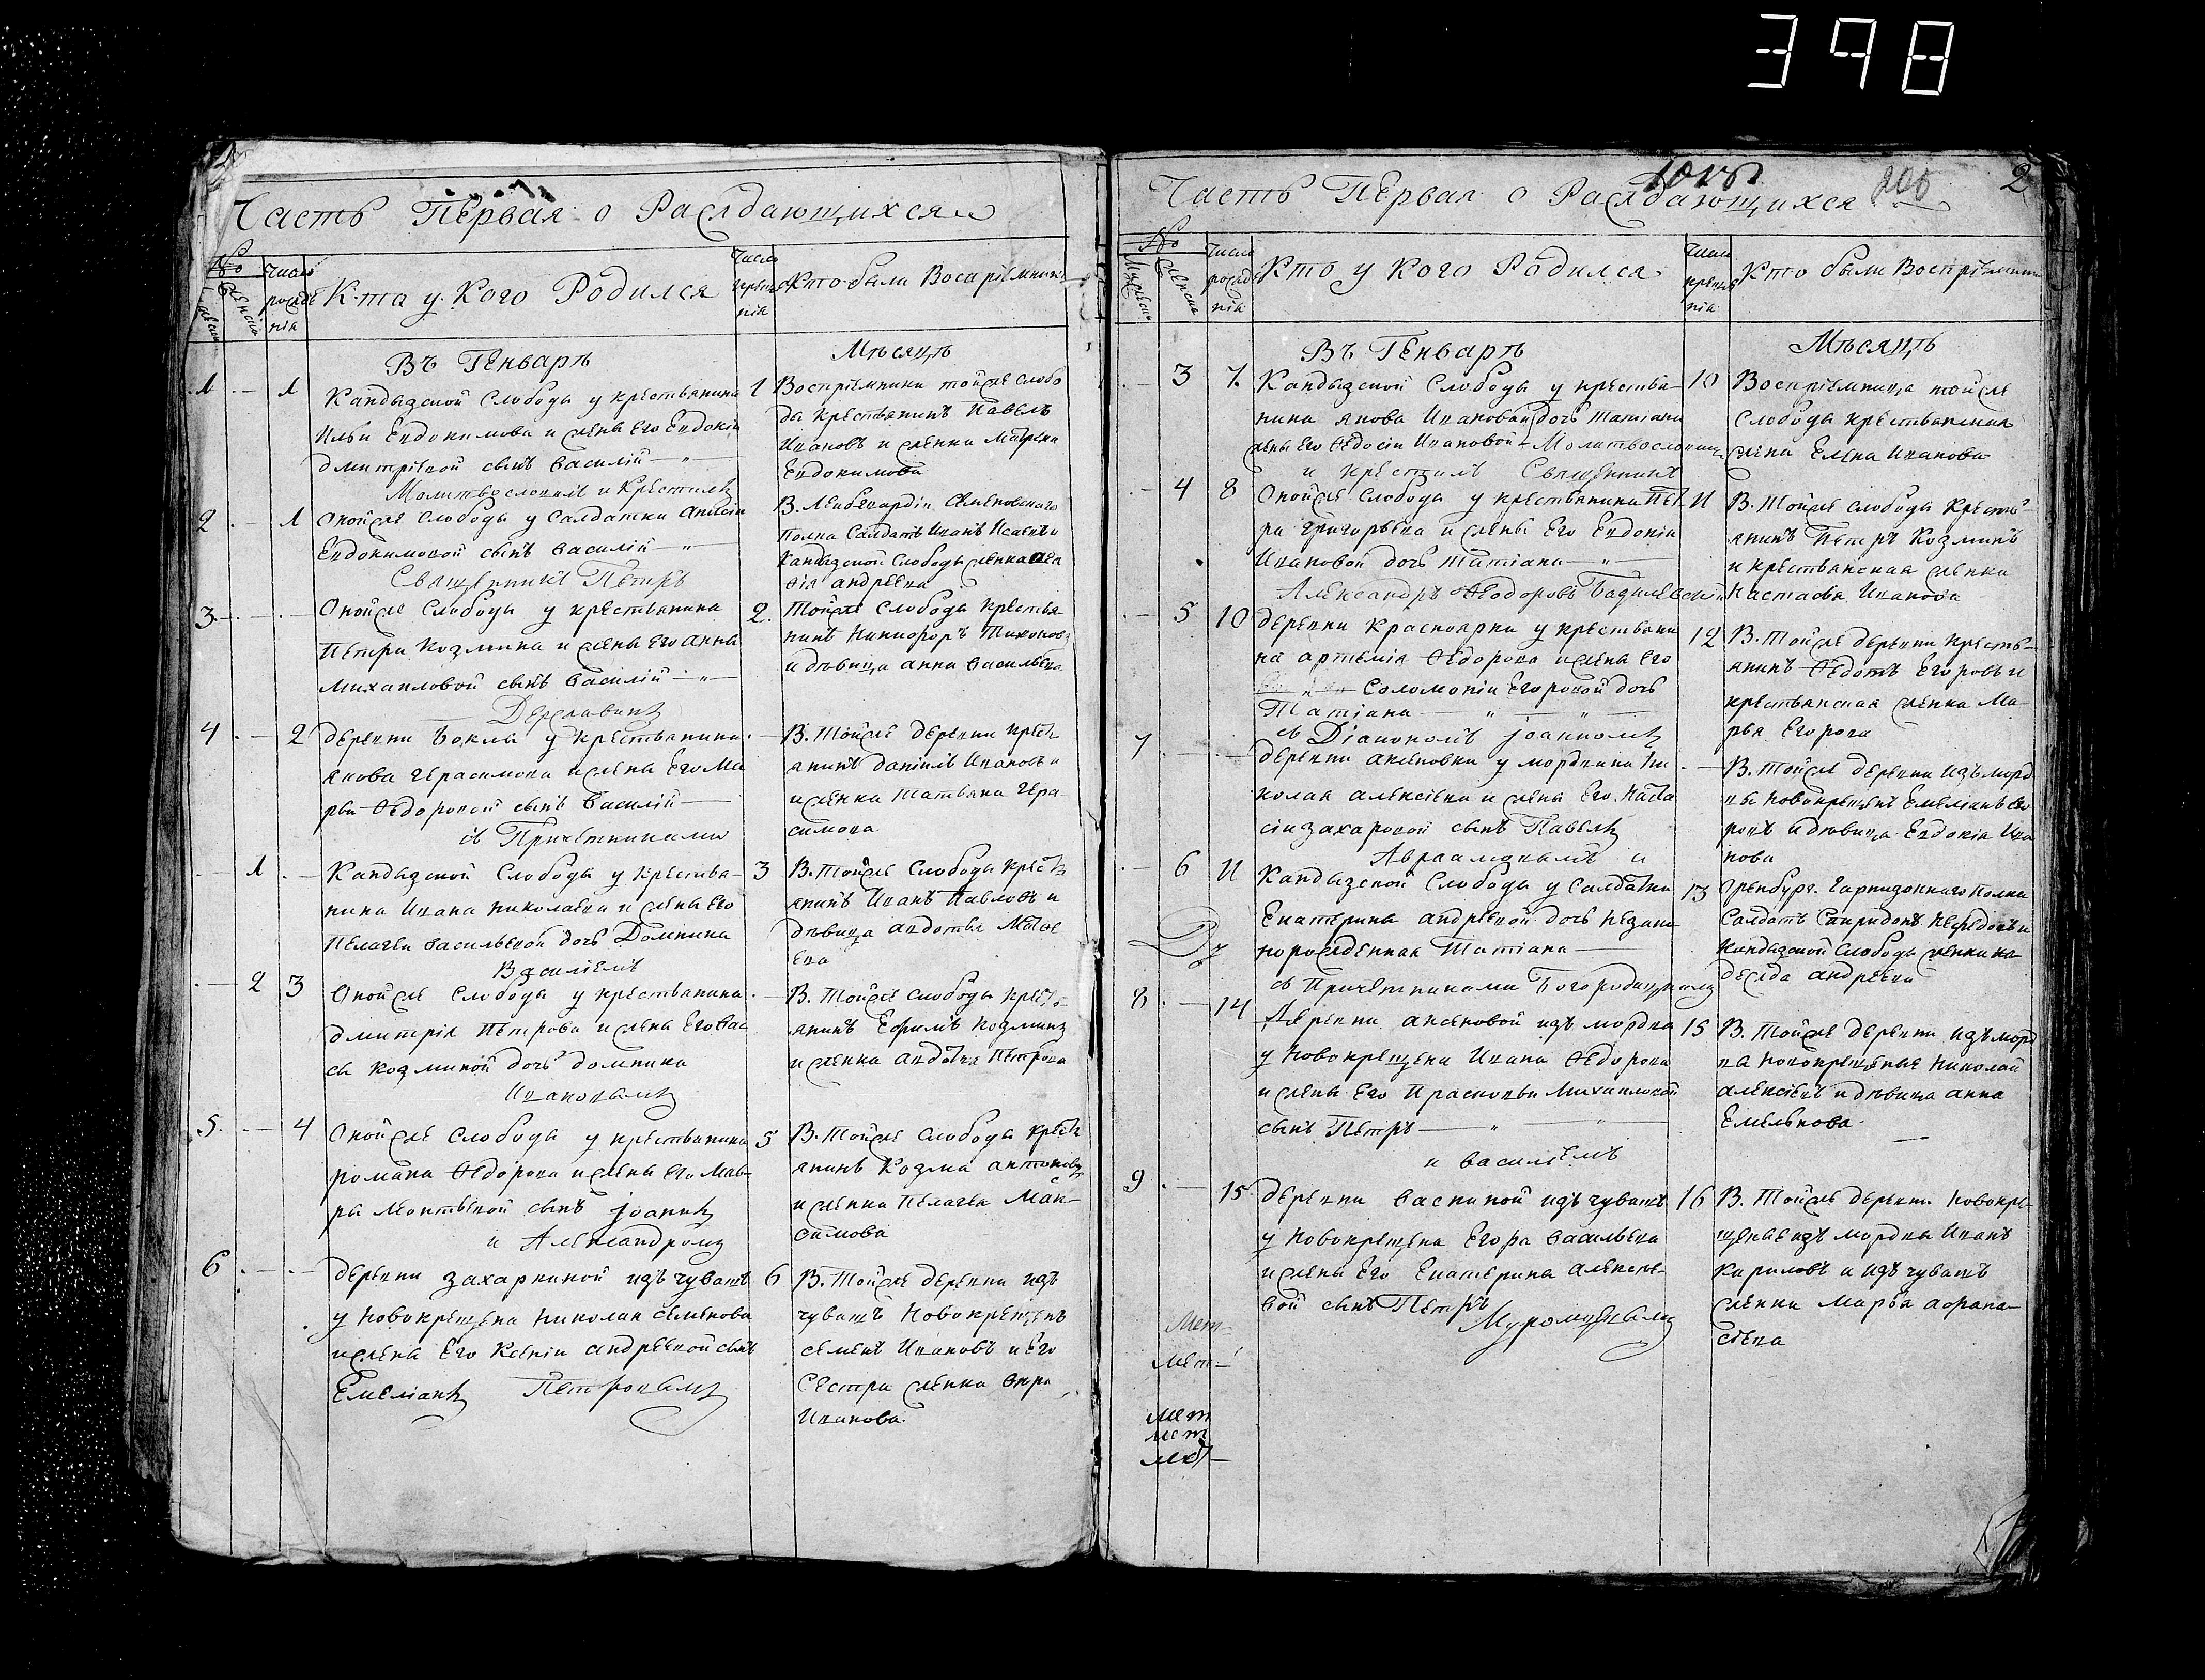 398
Часть Первая о Раждающихся
№
Число
рожде
нія
Кто у Кого Родился
Число
креще
нія
Кто были Воспріемники
Въ Генваре
Месяце
1 1 Кандызской Слободы у крестьянина
Ильи Евдокимова и жены Его Евдокіи
дмитріевой сынъ василій
Молитвословилъ и Крестилъ
1 Воспріемники тойже слобо
ды крестьянинъ Павелъ
Ивановъ и женка Матрена
Евдокимова
2 1 Онойже Слободы у Салдатки
Евдокимовой сынъ василій
Священникъ Петръ
В. Семеновскаго
полка Салдатъ Иванъ Исаевъ и
Кандызской Слободы женка
андреева
3 Онойже Слободы у крестьянина
Петра Козмина и жены Его анны
михаиловой сынъ василій
Державинъ
2 Тойже слободы крестья
нинъ Никифоръ Тихоновъ
и девица анна васильева
4 2 деревни Боклы у крестьянина
якова герасимова и жены Его Ма
рьи Федоровой сынъ василій
съ Причетниками
В. Тойже деревни крест
янинъ даніилъ Ивановъ и
женка татьяна гера
симова
1 Кандызской Слободы у крестья
нина Ивана николаева и жены Его
Пелагеи васильевой дочь Домника
Василіемъ
3 В. Тойже Слободы крест
янинъ Иванъ Павловъ и
девица авдотья Матве
ева
2 3 Онойже Слободы у крестьянина
дмитрія Петрова и жены Его Вас
сы козминой дочь домника
Ивановымъ
В. Тойже слободы крест
янинъ Ефимъ козминъ
и женка авдотья Петрова
5 4 Онойже слободы у крестьянина
романа Федорова и жены Его Мав
ры леонтьевой сынъ іоаннъ
и Александромъ
5 В. Тойже слободы крест
янинъ Козма антоновъ
и женка Пелагея Мак
симова
6 деревни захаркиной изъ чувашъ
у новокрещена николая семенова
и жены Его Ксеніи андреевой сынъ
Емеліанъ Петровымъ
6 В. Тойже деревни изъ
чувашъ новокрещенъ
семенъ Ивановъ и Его
сестра женка вера
Иванова
Часть Первая о Раждающихся
2
№
Мужеска
Женска
Число
рожде
нія
Кто у Кого Родился
Число
креще
нія
Кто были Воспріемники
Въ Генваре
Месяце
3 7 Кандызской Слободы у крестья
нина якова Иванова дочь татіана
жены Его Федосіи Ивановой Молитвословилъ
и крестилъ Священникъ
10 Воспріемница тойже
слободы крестьянская
женка Елена Иванова
4 8 Онойже слободы у крестьянина Пет
ра григорьева и жены Его Евдокіи
Ивановой дочь татіана
Александръ Федоровъ Базилевскій
11 В. Тойже слободы крестъ
янинъ Петръ Козминъ
и крестьянская женка
Настасья Иванова
5 10 деревни Красноярки у крестьяни
на артемія Федорова и жены Его
Соломоніи Егоровой дочь
Татіана
съ Діакономъ іоанномъ
12 В. Тойже деревни кресть
янинъ Федотъ Егоровъ и
крестьянская женка Ма
рья Егорова
7 деревни аксеновки у мордвина ни
колая алексіева и жены Его наста
сіи захаровой сынъ Павелъ
Авраамовымъ и
В. Тойже деревни изъ морд
вы новокрещенъ Емеліанъ Его
ровъ и девица Евдокія Ива
нова
6 11 Кандызской Слободы у салдатки
Екатерины андреевой дочь незако
норожденная татіана
съ Причетниками Богородицкимъ
13 Оренбург. гарнизоннаго полка
Салдатъ Спиридонъ Нефедовъ и
Кандызской слободы женка на
дежда андреева
8 14 Деревни аксеновой изъ мордвы
у новокрещена Ивана Федорова
и жены Его Прасковьи михаиловой
сынъ Петръ
и василіемъ
15 В. Тойже деревни изъ морд
вы новокрещеные николай
алексіевъ и девица анна
Емельянова
9 15 деревни васкиной изъ чувашъ
у новокрещена Егора васильева
и жены Его Екатерины алексее
вой сынъ Петръ
Муромцевымъ
16 В. Тойже деревни новокре
щеные изъ мордвы Иванъ
кириловъ и изъ чувашъ
женка марфа афана
сіева
Мет
Мет
Мет
Мет
Мет